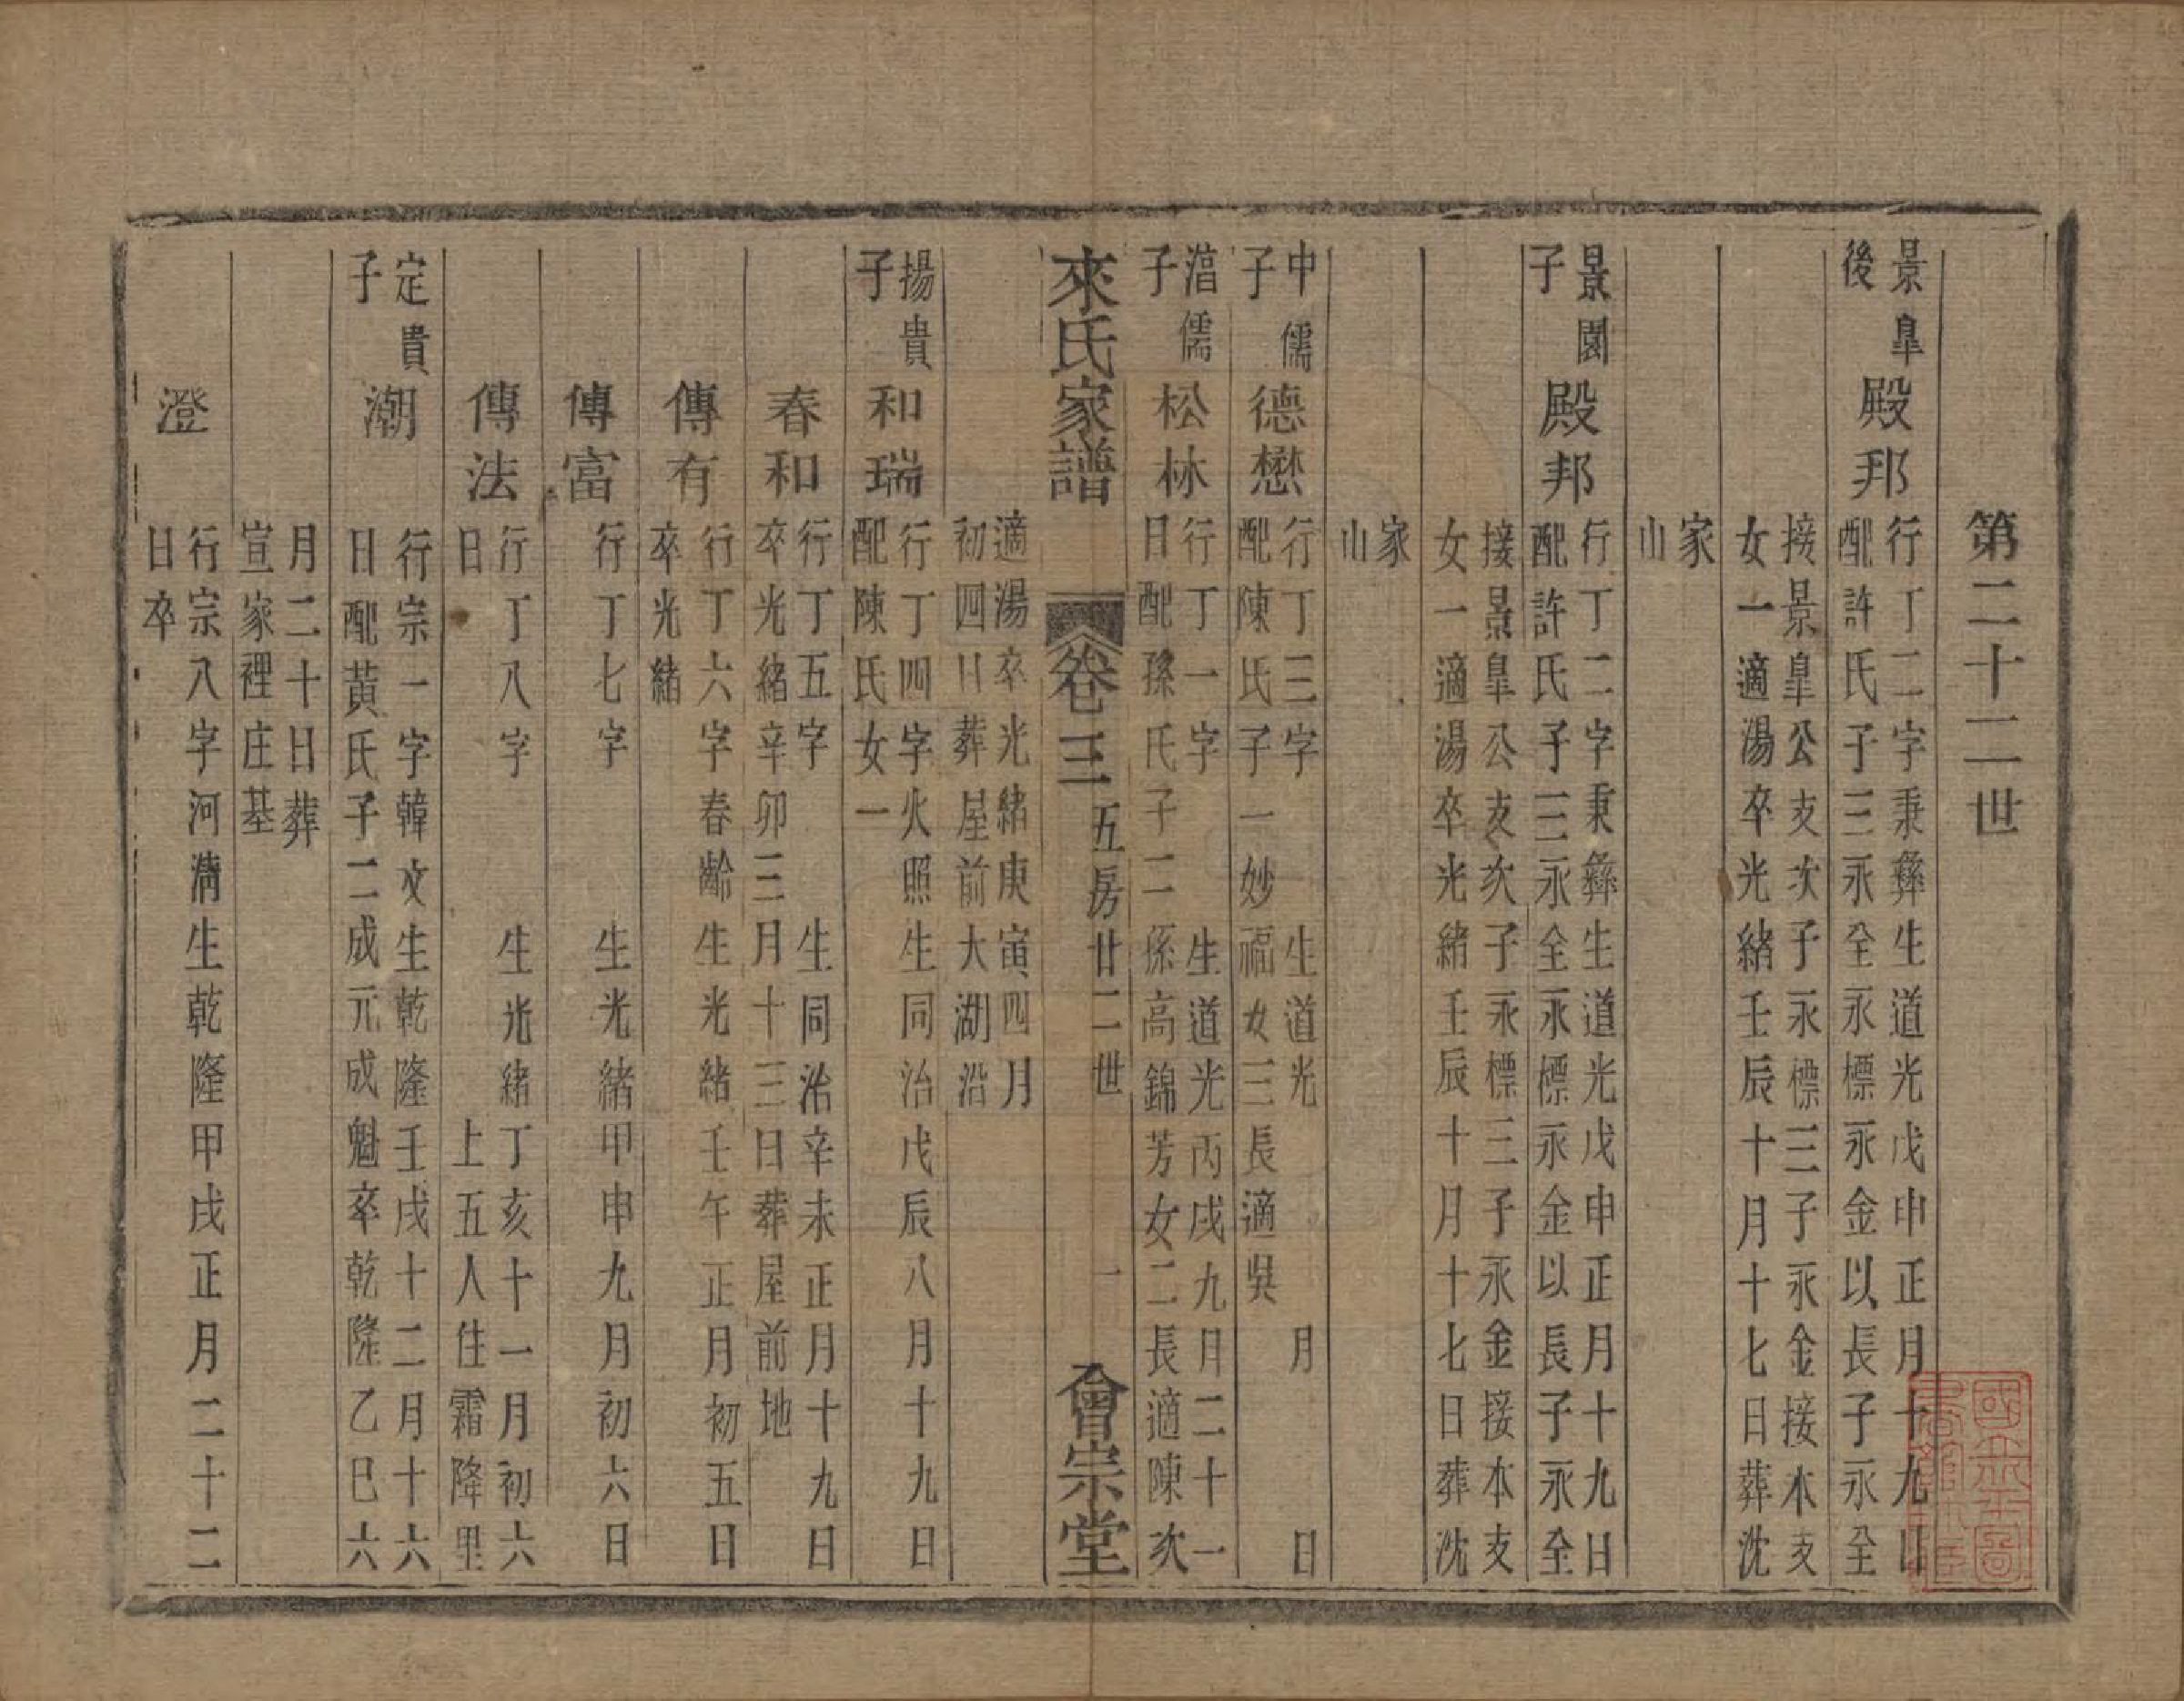 第二十二世
景臯後
殿邦
行丁二字秉彝生道光戊申正月十九日
配許氏子三永全永標永金以長子永全
接景臯公支次子永標三子永金接本支
女一適湯卒光緒壬辰十月十七日葬沈
家山
景園子
殿邦
行丁二字秉彝生道光戊申正月十九日
配許氏子三永全永標永金以長子永全
接景臯公支次子永標三子永金接本支
女一適湯卒光緒壬辰十月十七日葬沈
家山
中儒子
德懋
行丁三字 生道光 月 日
配陳氏子一妙福女三長適吳
湆儒子
松林
行丁一字 生道光丙戌九月二十一
日配孫氏子二孫高錦芳女二長適陳次
來氏家譜 卷三 五房廿二世 一 會宗堂
適湯卒光緒庚寅四月
初四日葬屋前大湖沿
揚貴子
和瑞
行丁四字火照生同治戊辰八月十九日
配陳氏女一
春和
行丁五字 生同治辛未正月十九日
卒光緒辛卯三月十三日葬屋前地
傳有
行丁六字春齡生光緒壬午正月初五日
卒光緒
傳富
行丁七字 生光緒甲申九月初六日
傳法
行丁八字 生光緒丁亥十一月初六
日 上五人住霜降里
定貴子
潮
行宗一字韓文生乾隆壬戌十二月十六
日配黃氏子二成元成魁卒乾隆乙巳六
月二十日葬
宣家裡庄基
澄
行宗八字河淸生乾隆甲戌正月二十二
日卒